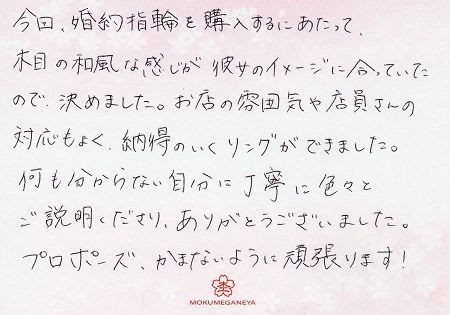 今回、婚約指輪を購入するにあたって、
木目の和風な感じが彼女のイメージに合っていた
ので、決めました。お店の雰囲気や店員さんの
対応もよく、納得のいくリングができました。
何も分からない自分に丁寧に色々と
ご説明くださり、ありがとうございました。
プロポーズ、かまないように頑張ります!
MOKUMEGANEYA